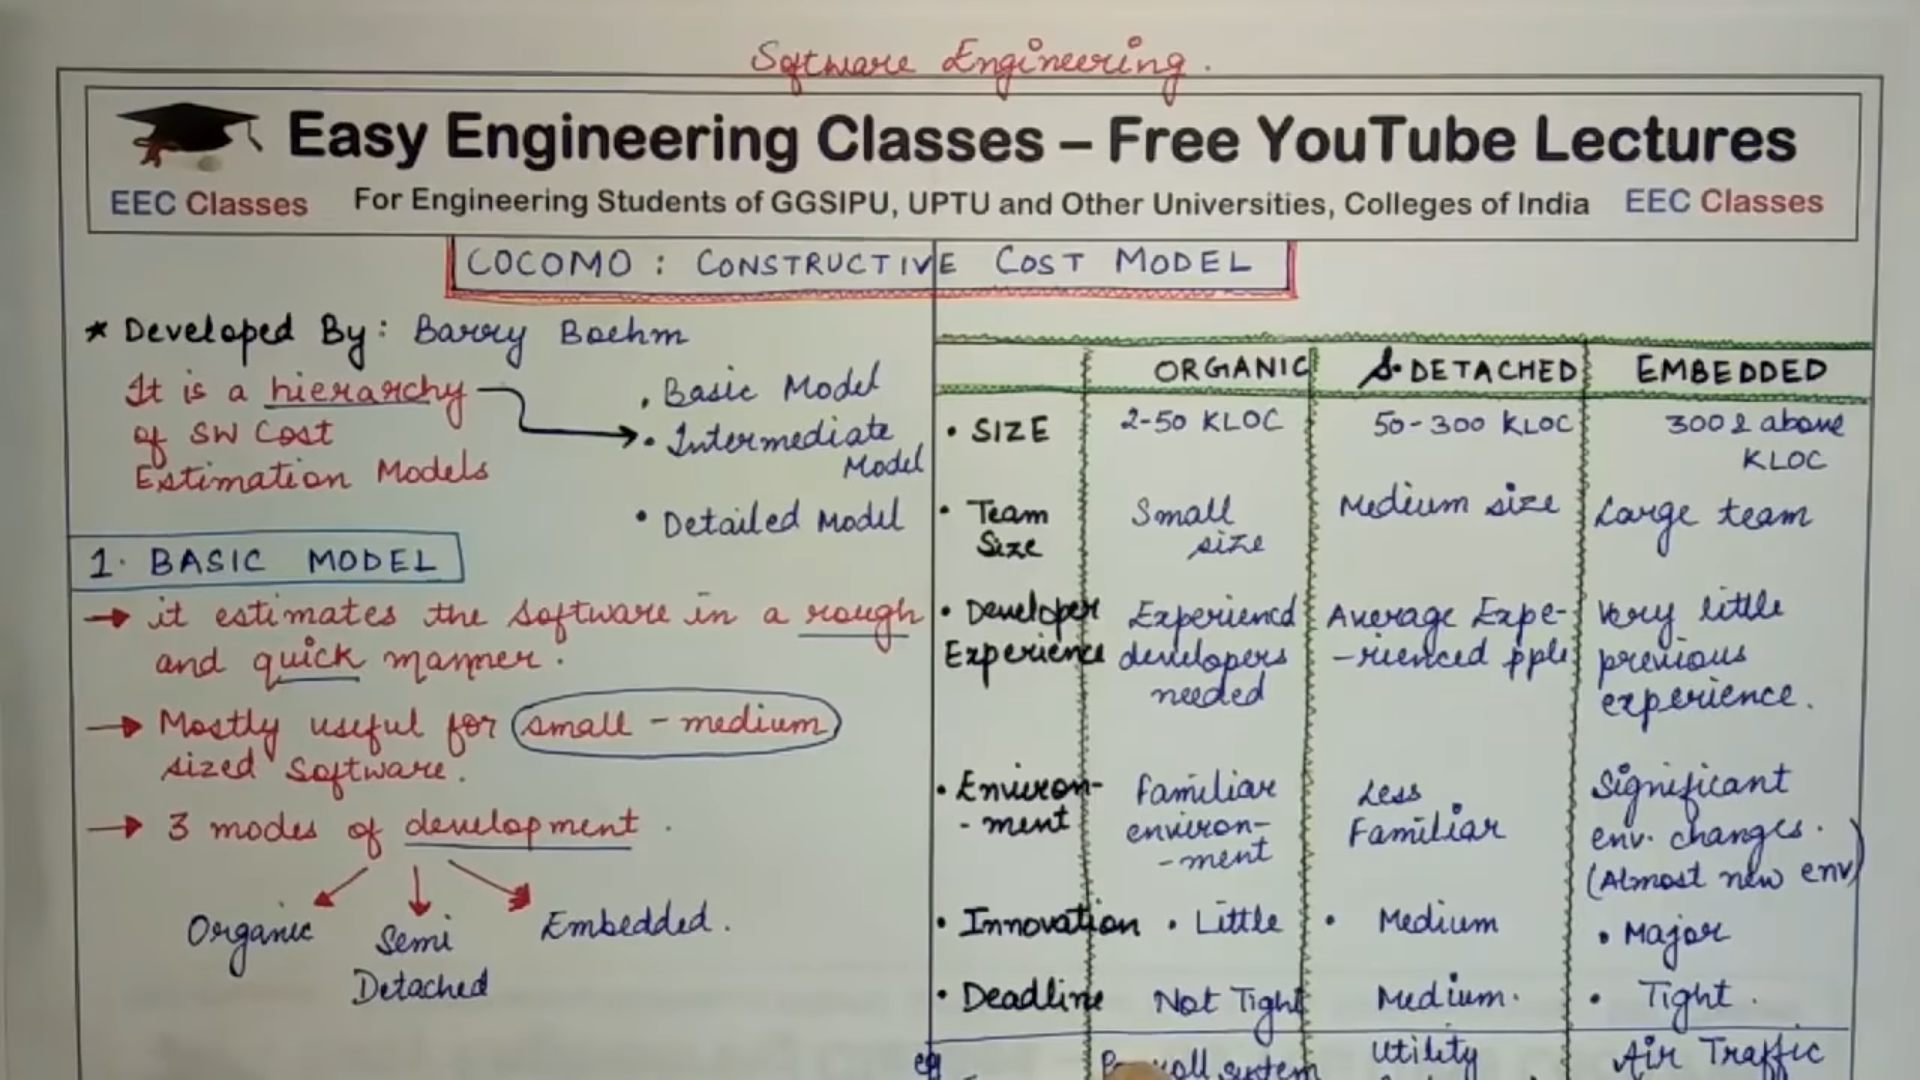 Software Engineering.
Easy Engineering Classes – Free YouTube Lectures
EEC Classes For Engineering Students of GGSIPU, UPTU and Other Universities, Colleges of India EEC Classes
COCOMO : CONSTRUCTIVE COST MODEL
* Developed By: Barry Boehm
It is a hierarchy
of SW Cost
Estimation Models
• Basic Model
• Intermediate
Model
• Detailed Model
1. BASIC MODEL
→ it estimates the software in a rough
and quick manner.
→ Mostly useful for small - medium
sized software.
→ 3 modes of development.
Organic
Semi
Detached
Embedded.
ORGANIC S.DETACHED EMBEDDED
• SIZE 2-50 KLOC 50-300 KLOC 300 & above
KLOC
• Team Small Medium size Large team
Size size
• Developer Experienced Average Expe- Very little
Experience developers -rienced pple previous
needed experience.
• Environ- Familiar Less Significant
-ment environ- Familiar env. changes.
-ment (Almost new env)
• Innovation • Little • Medium • Major
• Deadline Not Tight Medium. • Tight.
eg system Utility Air Traffic